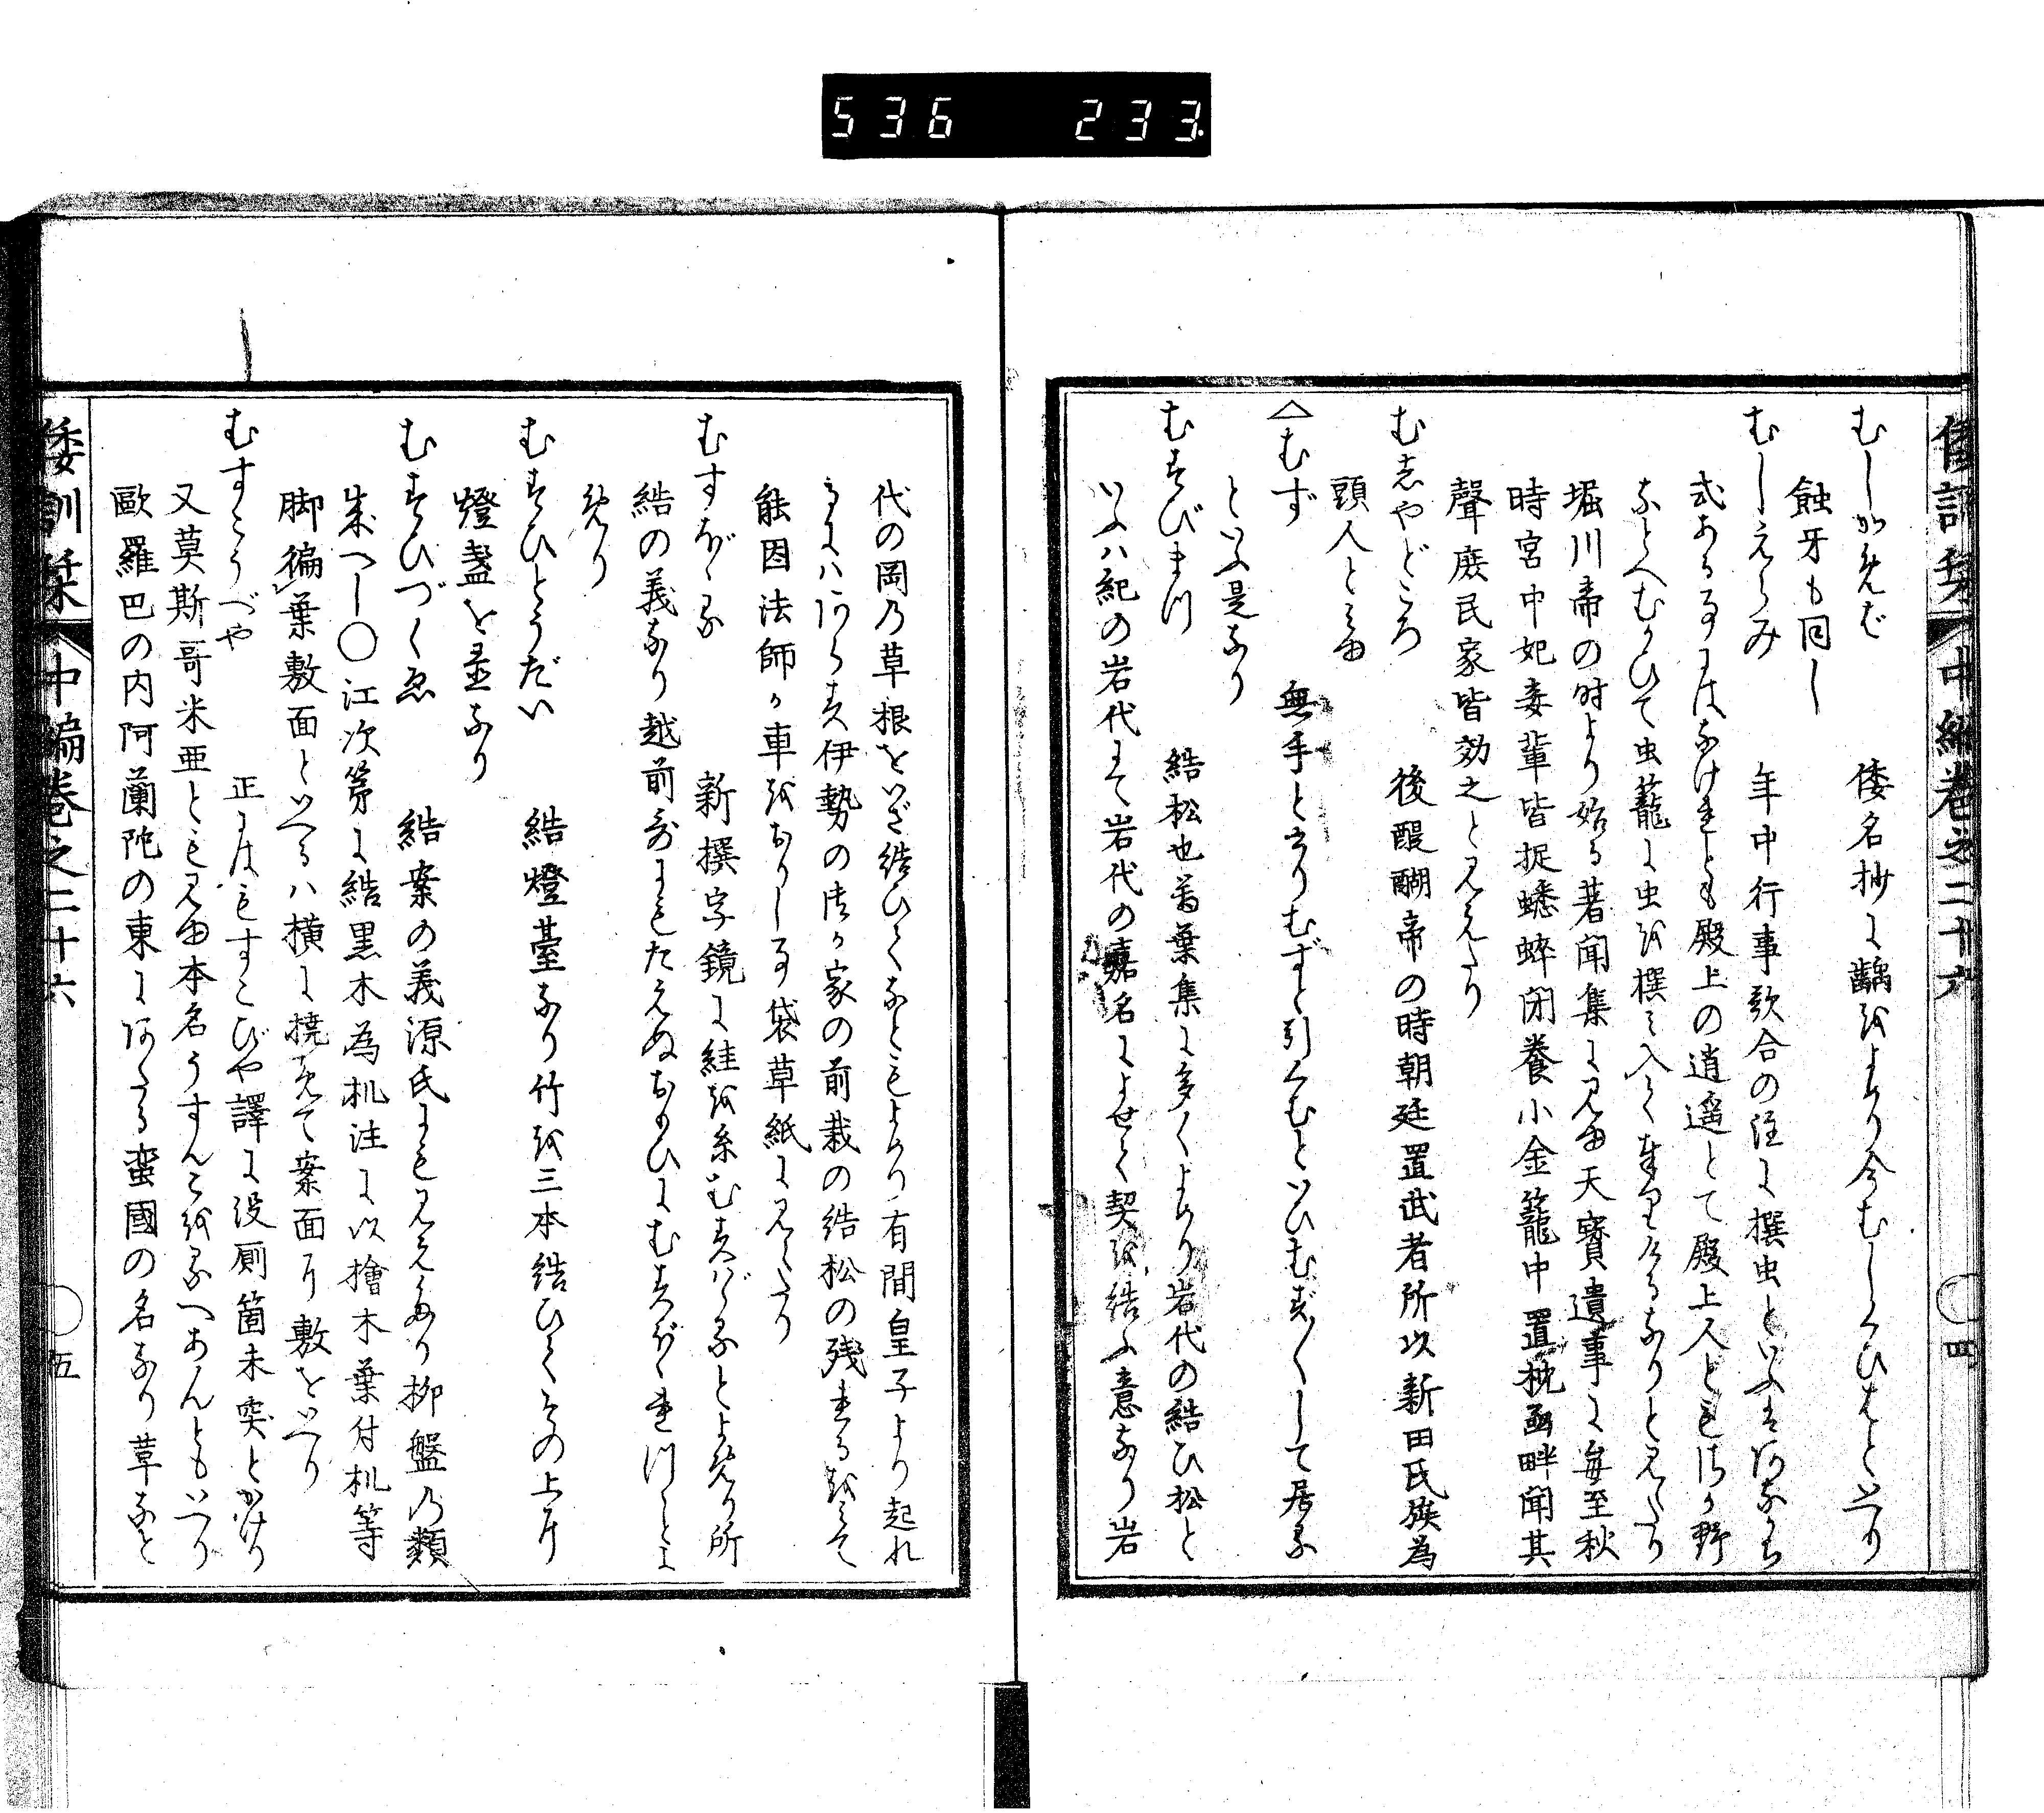 536 233
倭訓栞 中編巻之二十六 四
むしかめば 倭名抄に齲をよめり今むしくひばといへり
蝕牙も同し
むしえらみ 年中行事歌合の注に撰虫といふはあながち
式ある事にはなけれとも殿上の逍遥とて殿上人ともさが野
なとへむかひて虫籠に虫を撰み入て奉りけるなりと見えたり
堀川帝の時より始る著聞集に見ゆ天寳遺事に毎至秋
時宮中妃妾輩皆捉蟋蟀閉養小金籠中置枕函畔聞其
聲庶民家皆効之と見えたり
むしやどころ 後醍醐帝の時朝廷置武者所以新田氏族為
頭人とみゆ
△むず 無手とありむずと引くむといひむず〳〵して居る
といふ是なり
むすびまつ 結松也萬葉集に多くよめり岩代の結ひ松と
いふハ紀の岩代にて岩代の嘉名によせて契を結ふ意なり岩
代の岡乃草根をいざ結ひてなともよめり有間皇子より起れ
るにハあらす伊勢の御か家の前栽の結松の残れるをみて
能因法師か車をおりし事袋草紙に見えたり
むすぼゝる 新撰字鏡に絓を糸むすぼゝるとよめり所
結の義なり越前哥にもたえぬおもひにむすぼゝれつゝとよ
めり
むすひとうだい 結燈臺なり竹を三本結ひてその上に
燈盞を置なり
むすひづくゑ 結案の義源氏にも見えたり柳盤乃類
成へし〇江次第に結黒木為机注に以檜木葉付机等
脚徧葉敷面といへるハ横に撓めて案面に敷をいへり
むすこうべや 正にはもすこびや譯に没厠箇未突とかけり
又莫斯哥米亜とも見ゆ本名うすんこをるへあんともいへり
歐羅巴の内阿蘭陀の東にあたる蛮國の名なり草なと
倭訓栞 中編巻之二十六 五